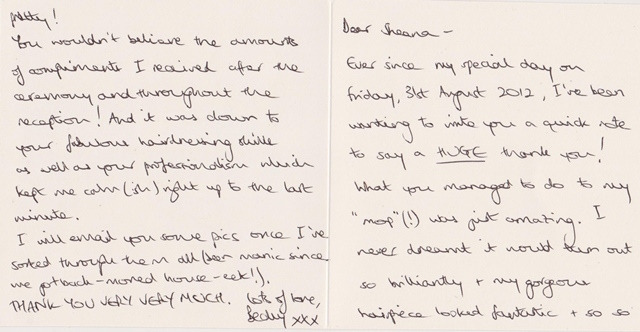 Dear Sheena -
Ever since my special day on
Friday, 31st August 2012, I've been
wanting to write you a quick note
to say a HUGE thank you!
What you managed to do to my
"mop"(!) was just amazing. I
never dreamt it would turn out
so brilliantly + my gorgeous
hairpiece looked fantastic + so so
pretty!
You wouldn't believe the amounts
of compliments I received after the
ceremony and throughout the
reception! And it was down to
your fabulous hairdressing skills
as well as your professionalism which
kept me calm (ish) right up to the last
minute.
I will email you some pics once I've
sorted through them all (been manic since
we got back - moved house - eek!).
THANK YOU VERY VERY MUCH. Lots of love,
Becky xxx